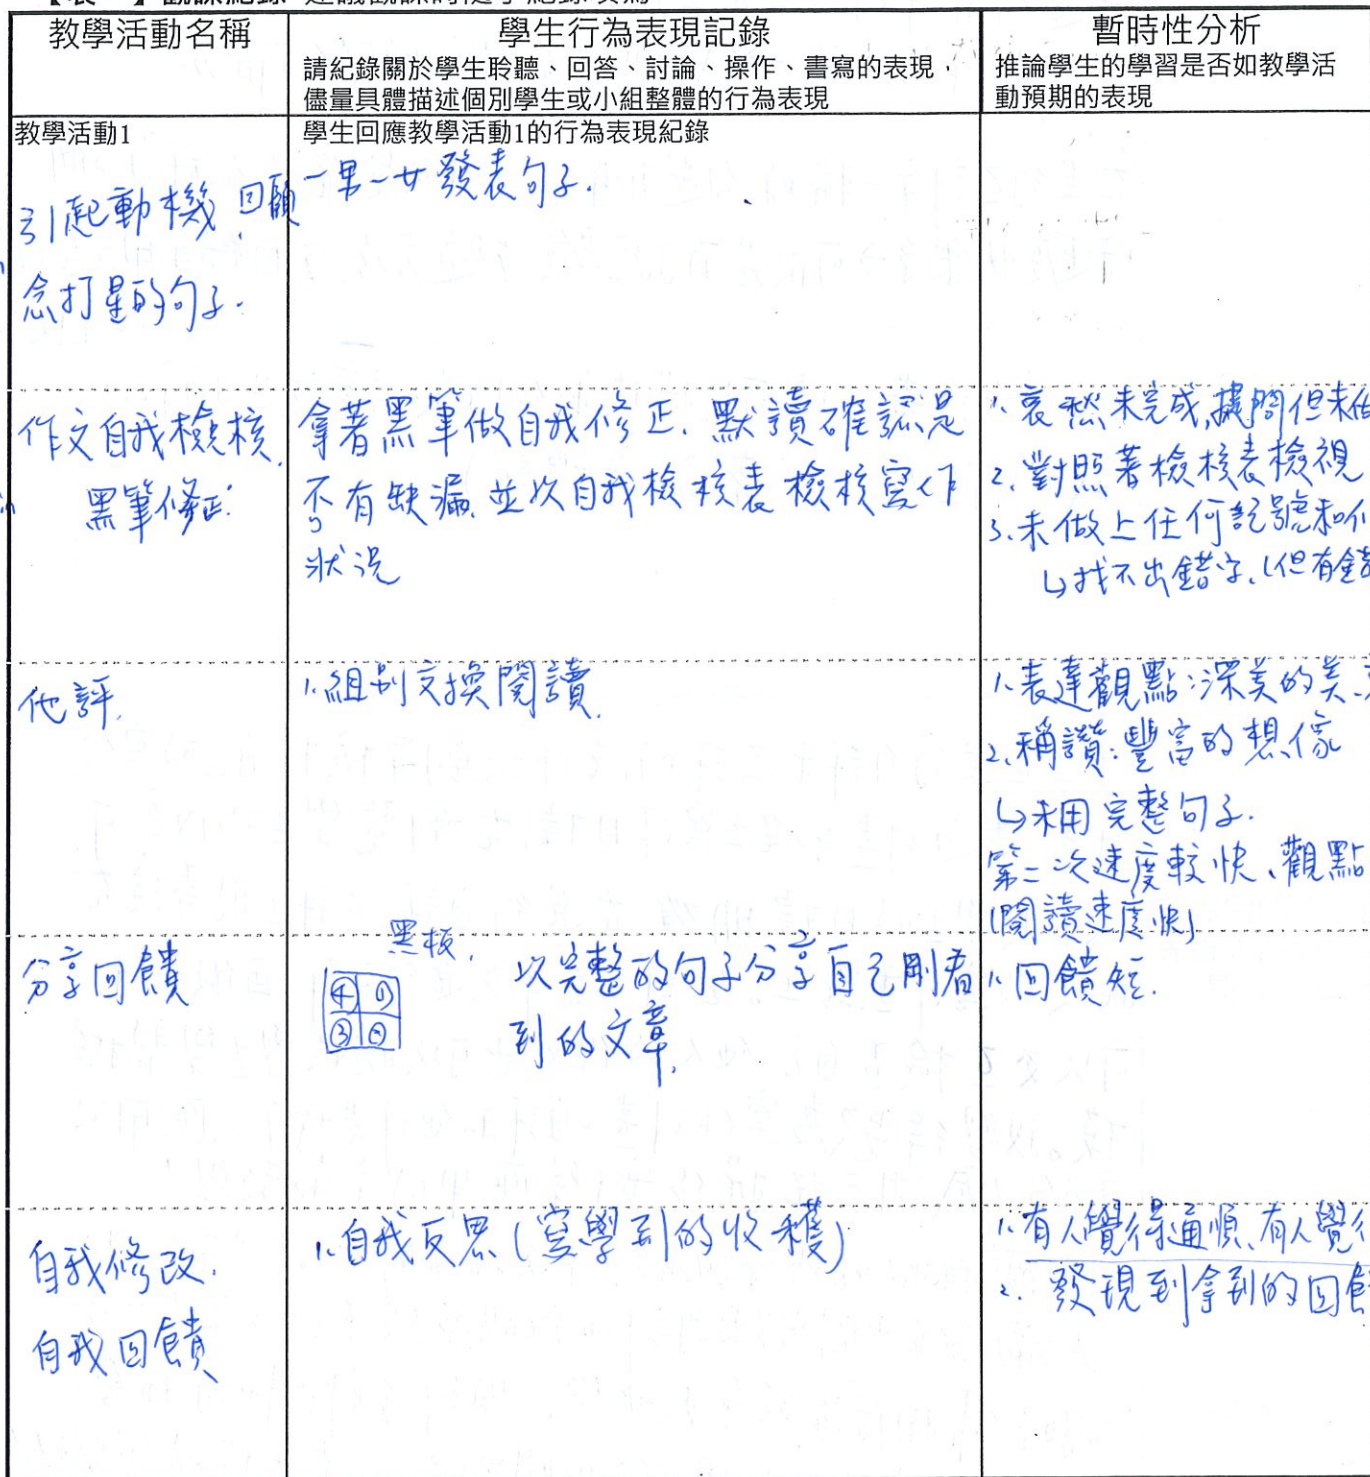 教學活動名稱
學生行為表現記錄
請紀錄關於學生聆聽、回答、討論、操作、書寫的表現，
儘量具體描述個別學生或小組整體的行為表現
暫時性分析
推論學生的學習是否如教學活
動預期的表現
教學活動1
學生回應教學活動1的行為表現紀錄
引起動機、回顧
念打星的句子.
一男一女發表句子.
作文自我檢核.
黑筆修正.
拿著黑筆做自我修正. 默讀確認是
否有缺漏. 並以自我檢核表檢核寫作
狀況
1. 哀愁未完成,提問但未
2. 對照著檢核表檢視
3. 未做上任何記號和
↳找不出錯字.(但有錯
他評.
1. 組別交換閱讀.
1. 表達觀點:深美的美
2. 稱讚:豐富的想像
↳未用完整句子.
第二次速度較快、觀點
(閱讀速度快)
分享回饋
黑板.
④ ①
③ ②
以完整的句子分享自己剛看
到的文章.
1. 回饋短.
自我修改.
自我回饋
1. 自我反思(寫學到的收穫)
1. 有人覺得通順、有人覺得
2. 發現到拿到的回饋